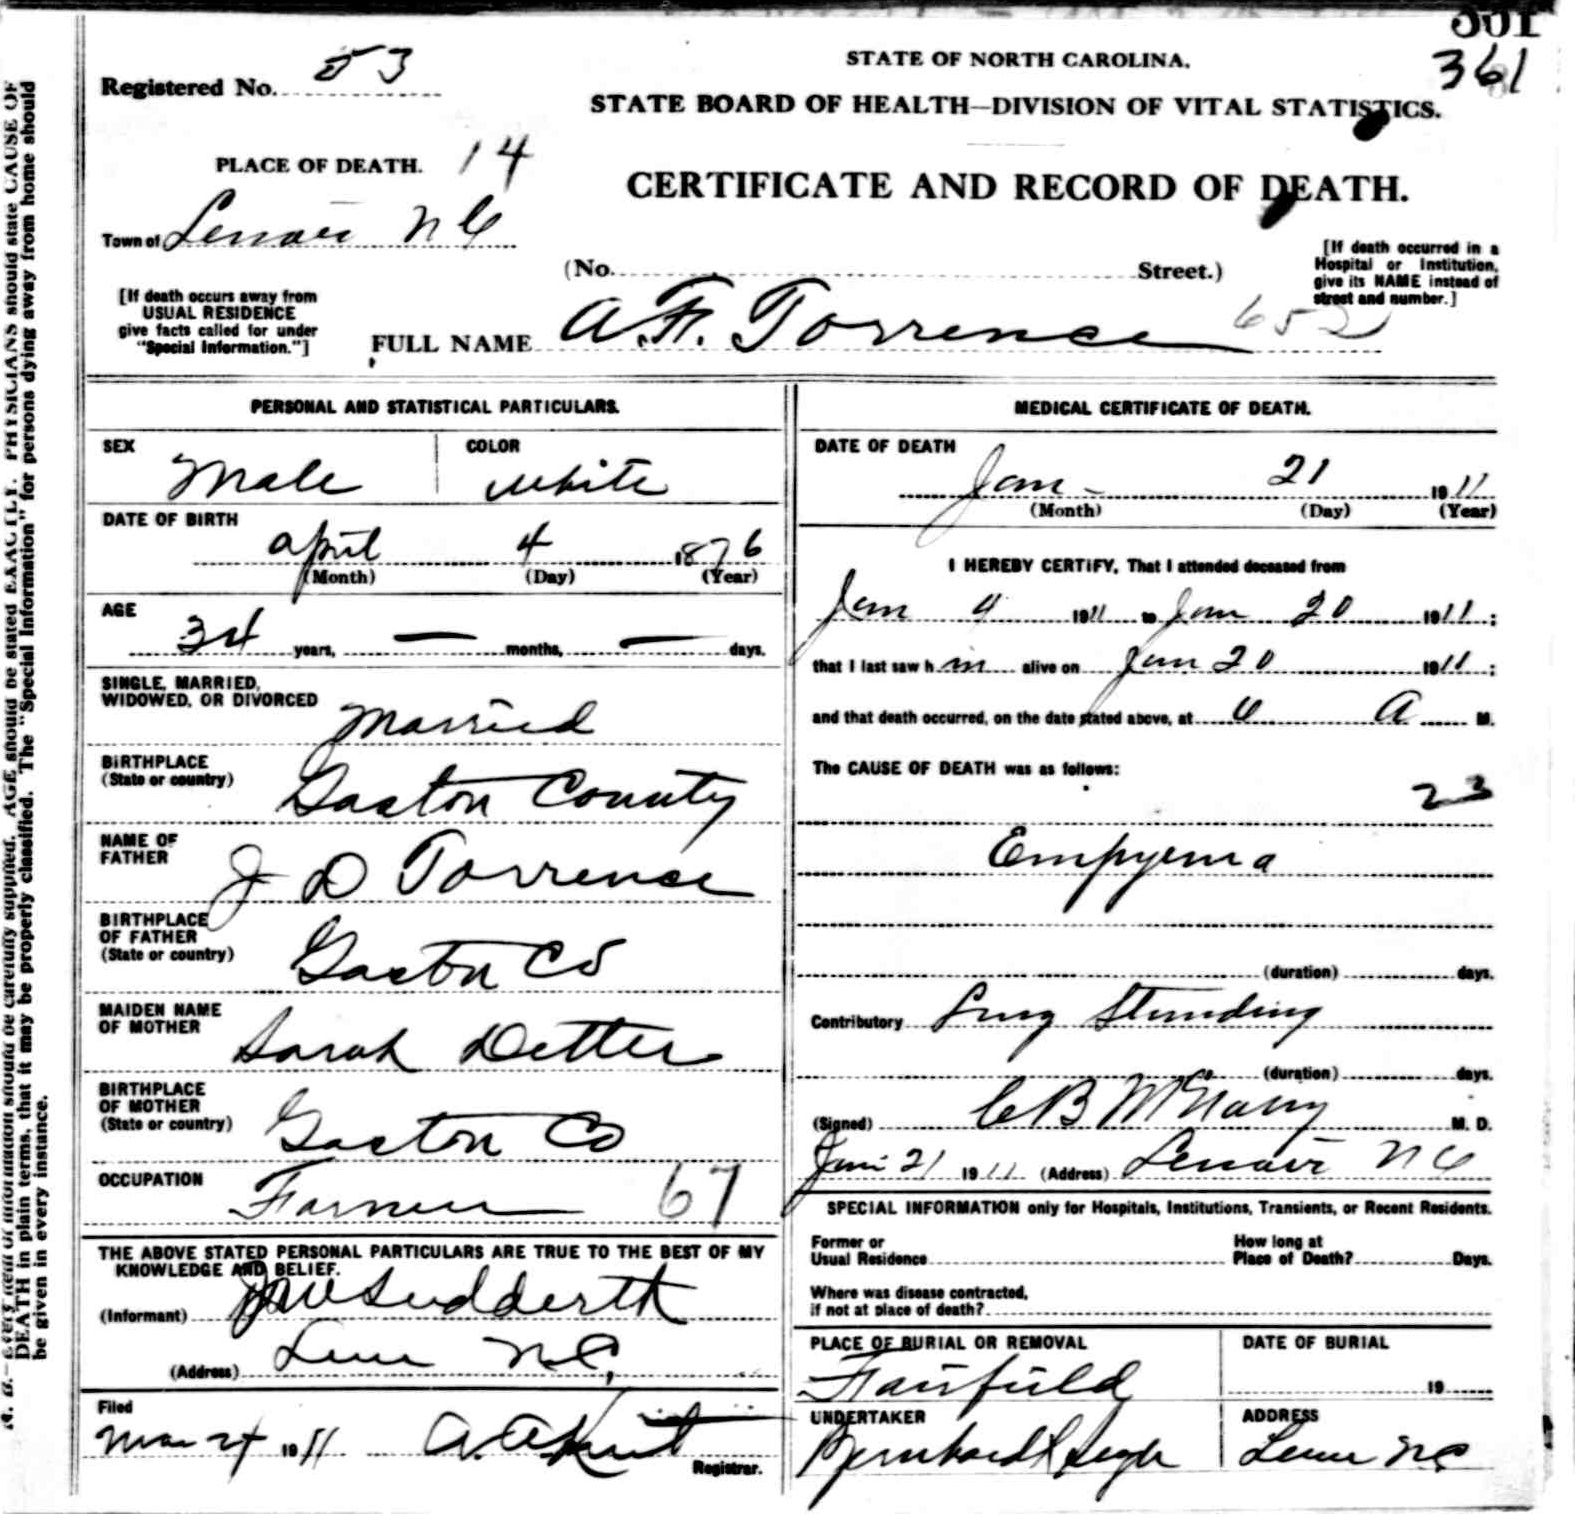 361
Registered No. 53
STATE OF NORTH CAROLINA.
361
STATE BOARD OF HEALTH—DIVISION OF VITAL STATISTICS.
PLACE OF DEATH. 14
CERTIFICATE AND RECORD OF DEATH.
Town of Lenoir N C
(No. Street.)
[If death occurred in a
Hospital or Institution,
give its NAME instead of
street and number.]
[If death occurs away from
USUAL RESIDENCE
give facts called for under
"Special Information."]
FULL NAME A. F. Torrence 652
PERSONAL AND STATISTICAL PARTICULARS.
SEX Male
COLOR white
DATE OF BIRTH
April 4 1876
(Month) (Day) (Year)
AGE
34 years, — months, — days.
SINGLE, MARRIED,
WIDOWED, OR DIVORCED Married
BIRTHPLACE
(State or country) Gaston County
NAME OF
FATHER J D Torrence
BIRTHPLACE
OF FATHER
(State or country) Gaston Co
MAIDEN NAME
OF MOTHER Sarah Detter
BIRTHPLACE
OF MOTHER
(State or country) Gaston Co
OCCUPATION Farmer 67
THE ABOVE STATED PERSONAL PARTICULARS ARE TRUE TO THE BEST OF MY
KNOWLEDGE AND BELIEF.
(Informant) Sudderth
(Address) N C,
Filed
Mar 24 1911 A. A. Kent
Registrar.
MEDICAL CERTIFICATE OF DEATH.
DATE OF DEATH
Jan - 21 1911
(Month) (Day) (Year)
I HEREBY CERTIFY, That I attended deceased from
Jan 4 1911 to Jan 20 1911;
that I last saw h im alive on Jan 20 1911;
and that death occurred, on the date stated above, at 6 A M.
The CAUSE OF DEATH was as follows:
23
Empyema
(duration) days.
Contributory Long Standing
(duration) days.
(Signed) C B McNairy M. D.
Jan 21 1911 (Address) Lenoir N C
SPECIAL INFORMATION only for Hospitals, Institutions, Transients, or Recent Residents.
Former or
Usual Residence
How long at
Place of Death? Days.
Where was disease contracted,
if not at place of death?
PLACE OF BURIAL OR REMOVAL
Fairfield
DATE OF BURIAL
19
UNDERTAKER
Bernhardt
ADDRESS
Lenoir N C
N. B.—Every item of information should be carefully supplied. AGE should be stated EXACTLY. PHYSICIANS should state CAUSE OF
DEATH in plain terms, that it may be properly classified. The "Special Information" for persons dying away from home should
be given in every instance.